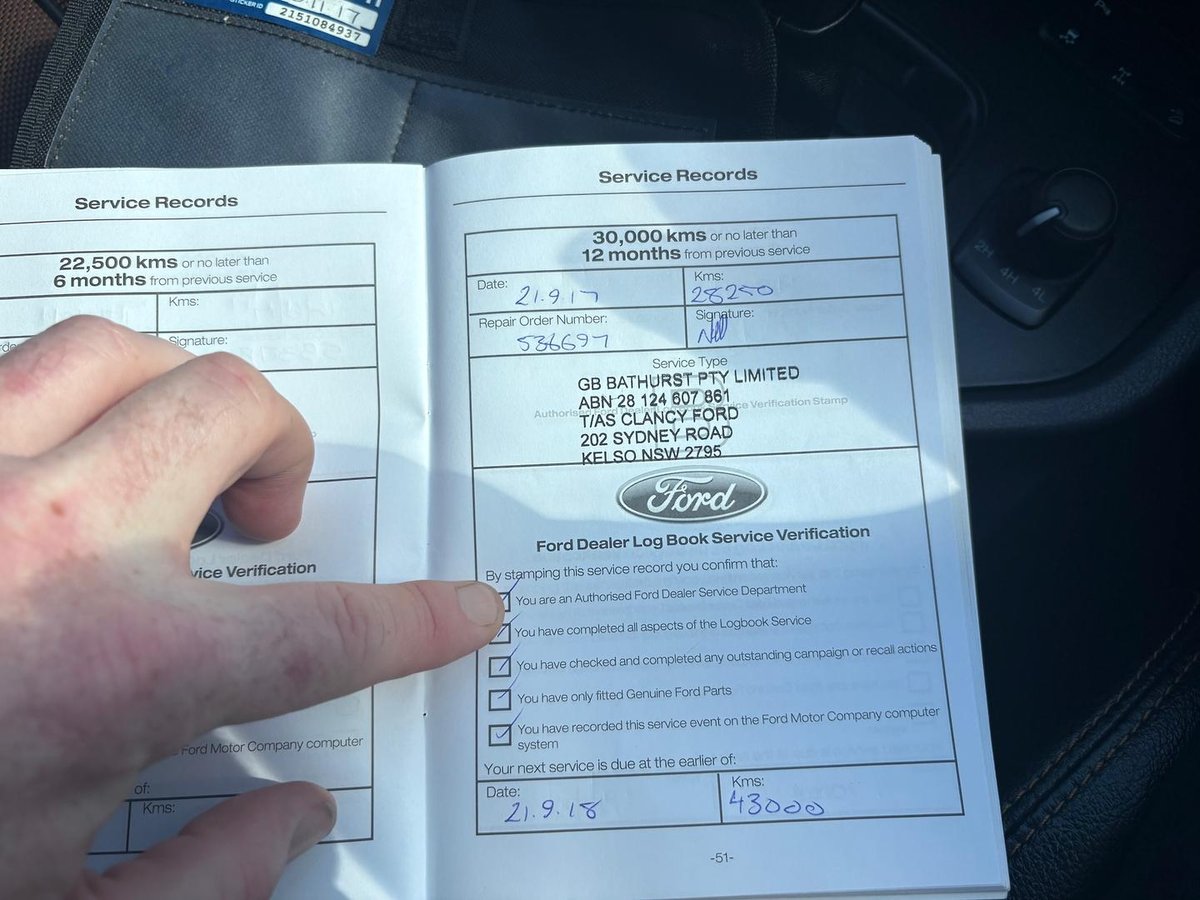 11.17
STICKER ID
2151084937
Service Records
22,500 kms or no later than
6 months from previous service
Kms:
Signature:
vice Verification
Ford Motor Company computer
of:
Kms:
Service Records
30,000 kms or no later than
12 months from previous service
Date: 21.9.17
Kms: 28250
Repair Order Number: 536697
Signature:
Service Type
GB BATHURST PTY LIMITED
ABN 28 124 607 861
T/AS CLANCY FORD
202 SYDNEY ROAD
KELSO NSW 2795
Ford
Ford Dealer Log Book Service Verification
By stamping this service record you confirm that:
You are an Authorised Ford Dealer Service Department
You have completed all aspects of the Logbook Service
You have checked and completed any outstanding campaign or recall actions
You have only fitted Genuine Ford Parts
You have recorded this service event on the Ford Motor Company computer
system
Your next service is due at the earlier of:
Date: 21.9.18
Kms: 43000
-51-
2H
4H
4L